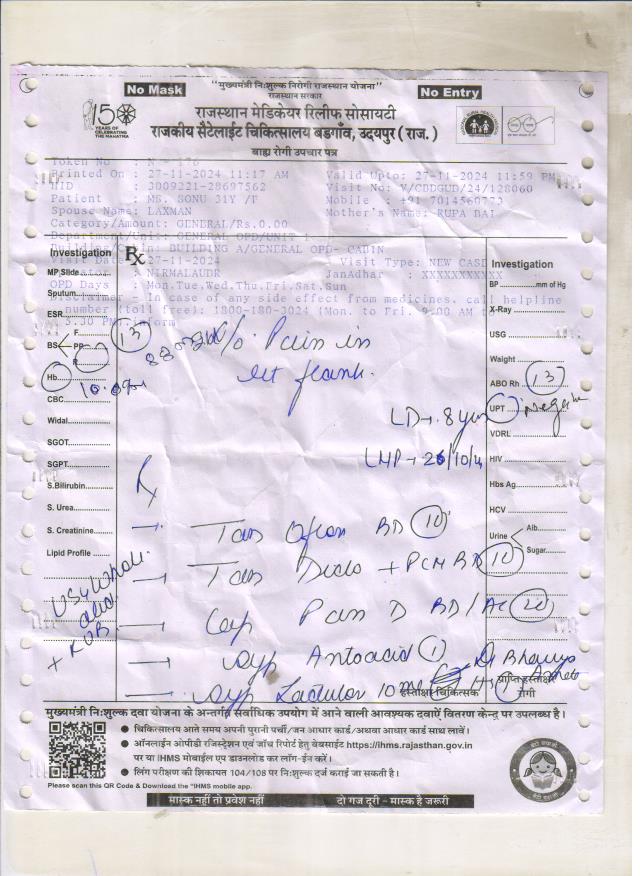 No Mask
"मुख्यमंत्री निःशुल्क निरोगी राजस्थान योजना"
राजस्थान सरकार
No Entry
150
YEARS OF
CELEBRATING
THE MAHATMA
राजस्थान मेडिकेयर रिलीफ सोसायटी
राजकीय सैटेलाईट चिकित्सालय बडगाँव, उदयपुर ( राज. )
बाह्य रोगी उपचार पत्र
Token No : N - 176
Printed On : 27-11-2024 11:17 AM Valid Upto: 27-11-2024 11:59 PM
HID : 3009221-28697562 Visit No: V/CBDGUD/24/128060
Patient : MS. SONU 31Y /F Mobile : +91 7014560773
Spouse Name: LAXMAN Mother's Name: RUPA BAI
Category/Amount: GENERAL/Rs.0.00
Department/Unit: GENERAL OPD/UNIT 1
Building/Cabin: BUILDING A/GENERAL OPD- CABIN
Visit Date : 27-11-2024 Visit Type: NEW CASE
NIRMALAUDR JanAdhar : XXXXXXXXXXX
OPD Days : Mon.Tue.Wed.Thu.Fri.Sat.Sun
Disclaimer - In case of any side effect from medicines. call helpline
number (toll free): 1800-180-3024 (Mon. to Fri. 9:00 AM to
5.30 PM.
Investigation
MP Slide
Sputum
ESR
BS F
PP
R
Hb 10.0
CBC
Widal
SGOT
SGPT
S.Bilirubin
S. Urea
S. Creatinine
Lipid Profile
USG whole
abd.
+ KUB
Rx
13
c/o Pain in
flank.
8 yrs
LMP → 26/10/
Rx
→ Tab Oflox BD 10
→ Tab Diclo + PCM BD 10
→ Cap Pan D BD/AC 20
→ Syp Antacid 1
→ Syp Lactulos 10 ml HS
Investigation
BP mm of Hg
X-Ray
USG
Waight
ABO Rh 13
UPT
VDRL
HIV
Hbs Ag
HCV
Urine Alb.
Sugar
हस्ताक्षर चिकित्सक
प्राप्ति हस्ताक्षर
रोगी
मुख्यमंत्री निःशुल्क दवा योजना के अन्तर्गत सर्वाधिक उपयोग में आने वाली आवश्यक दवाऐं वितरण केन्द्र पर उपलब्ध है।
● चिकित्सालय आते समय अपनी पुरानी पर्ची/जन आधार कार्ड/अथवा आधार कार्ड साथ लावें।
● ऑनलाईन ओपीडी रजिस्ट्रेशन एवं जांच रिपोर्ट हेतु वेबसाईट https://ihms.rajasthan.gov.in
पर या IHMS मोबाईल एप डाउनलोड कर लॉग-ईन करें।
● लिंग परीक्षण की शिकायत 104/108 पर निःशुल्क दर्ज कराई जा सकती है।
Please scan this QR Code & Download the "IHMS mobile app.
मास्क नहीं तो प्रवेश नहीं
दो गज दूरी - मास्क है जरूरी